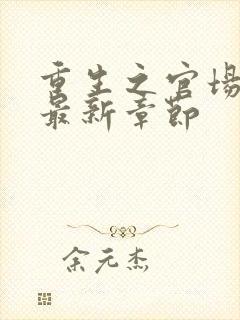 重生之官场
最新章节
余元杰